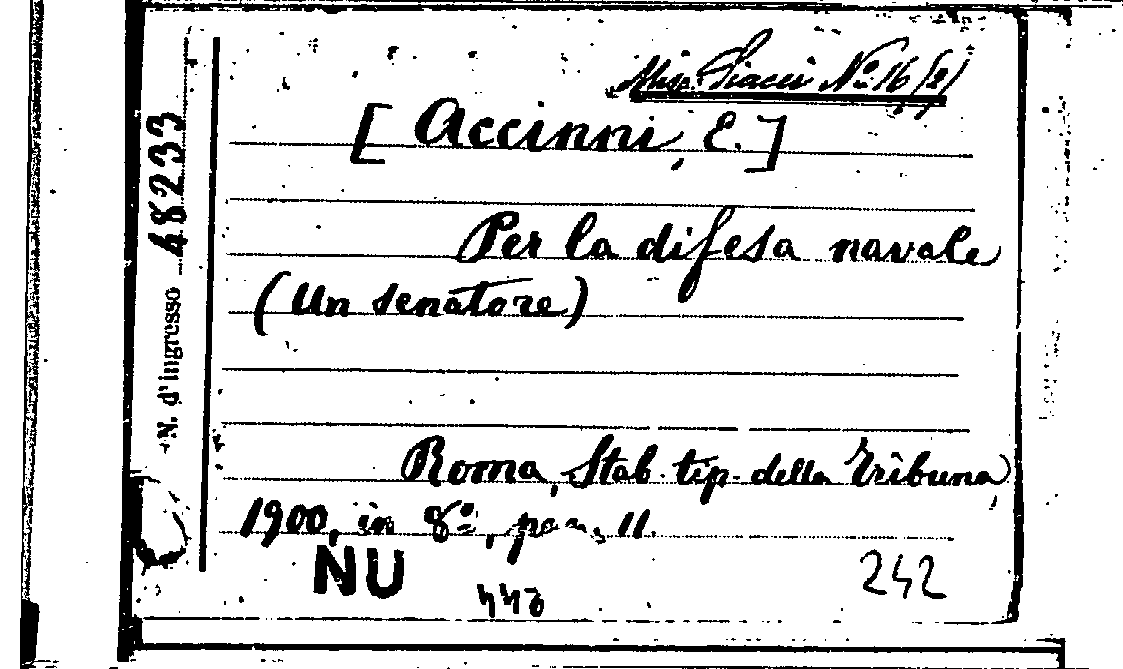 Misc. Siacci Nº 16 (2)
[Accinni, E.]
Per la difesa navale
(Un senatore)
Roma, Stab. tip. della Tribuna,
1900, in 8º, pag. 11.
NU
242
N. d'ingresso 48233